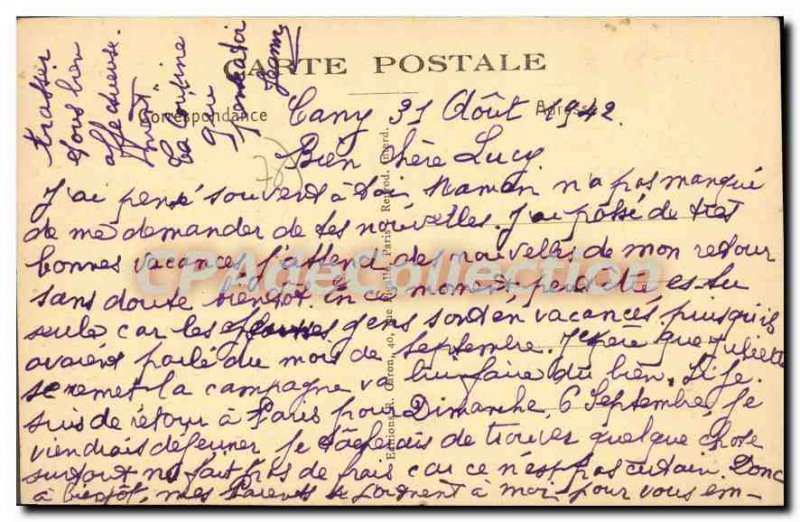 CARTE POSTALE
Correspondance
Cany 31 Août 1942.
Bien chère Lucy
J'ai pensé souvent à toi Maman n'a pas manqué
de me demander de tes nouvelles. J'ai passé de très
bonnes vacances j'attend des nouvelles de mon retour
sans doute bientôt. En ce moment, peut-être es-tu
seule car les gens sont en vacances, puisqu'ils
avaient parlé du mois de septembre. J'espère que Juliette
se remet la campagne va lui faire du bien. Si je
suis de retour à Paris pour Dimanche 6 Septembre, je
viendrais déjeuner je tâcherais de trouver quelque chose
surtout ne fait pas de frais car ce n'est pas certain. Donc
à bientôt, mes Parents se joignent à moi pour vous em-
brasser
tous bien
affectueuse-
ment
Ta Cousine
qui
CPAdeCollection
Editions R. Géron, 40, rue Paris - Reprod. Interd.